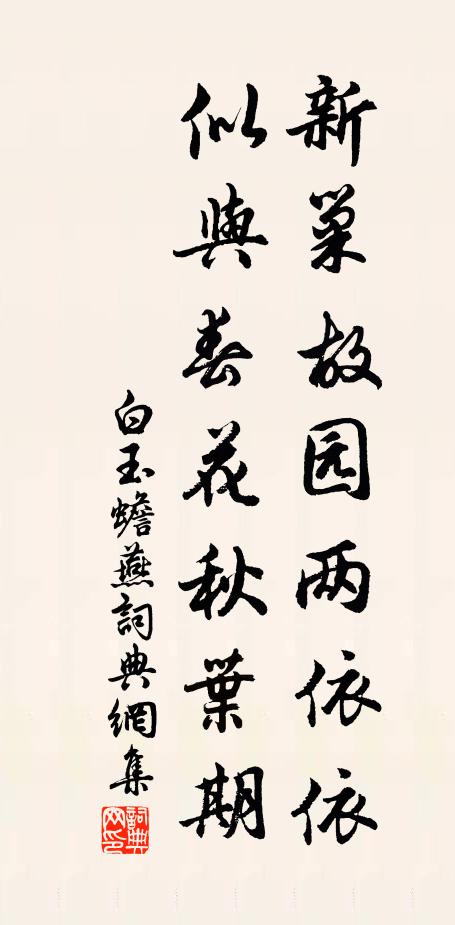 新巢故园兩依依
似與春花秋葉期
白玉蟾燕詞典網集
詞典网印